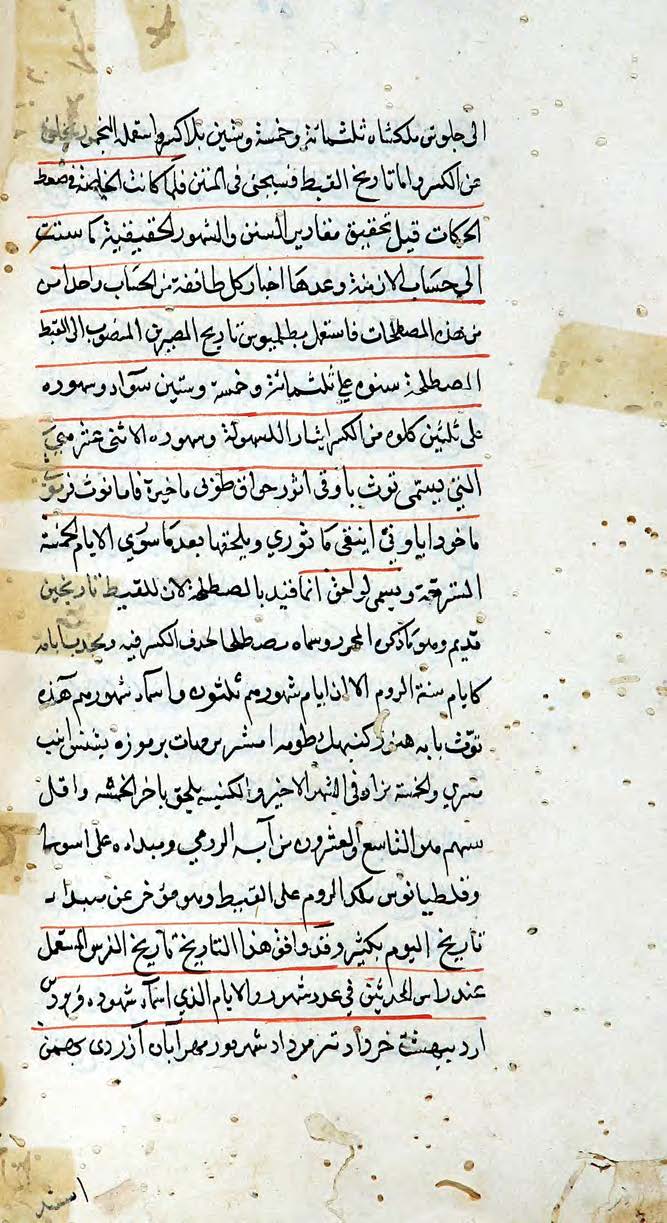 الى جلوس ملكشاه ثلثمائة وخمسة وستين بلا كسر واستعمله المنجمون
عن الكسر واما تاريخ القبط فسيجئ في المتن فلما كانت
الحركات قبل تحقيق مقادير السنين والشهور الحقيقية
الى حساب الازمنة وعدها اختار كل طائفة من الحساب واحدا من
من هذه المصطلحات فاستعمل بطلميوس تاريخ المصريين المنسوب الى القبط
المصطلحة سنوه على ثلثمائة وخمسة وستين سواد وشهوره
على ثلثين كلوه من الكسر ايثارا للسهولة وشهوره الاثنى عشر هي
التي يسمى توث باوفى اثور حواق طوبى ماخيرة فامانوث
ماخوردايا وفى ابيفى ماثوري ويلحقها بعد ماسوري الايام الخمسة
المسترقة ويسمى لواحق انما قيد بالمصطلحة لان للقبط تاريخين
قديم وهو ما ذكره المحرر وسماه مصطلحا لحذف الكسر فيه
كايام سنة الروم الا ان ايام شهورهم ثلثون واسماء شهورهم هذه
توث بابه هتور كيهك طوبه امشير برمهات برموزه بشنس ابيب
مسري والخمسة يزاد في الشهر الاخير والكبيسة يلحق باخر الخمسة واقل
سنهم هو التاسع والعشرون من آب الرومي ومبداءه على
دقلطيانوس ملك الروم على القبط وهو مؤخر عن مبداء
تاريخ اليوم بكثير وقد وافق هذا التاريخ تاريخ الفرس المستعمل
عند راس الحديثين في عدد شهور والايام الذي اسماء شهوره
ارديبهشت خرداد تير مرداد شهريور مهر آبان آذر دى بهمن
اسفند